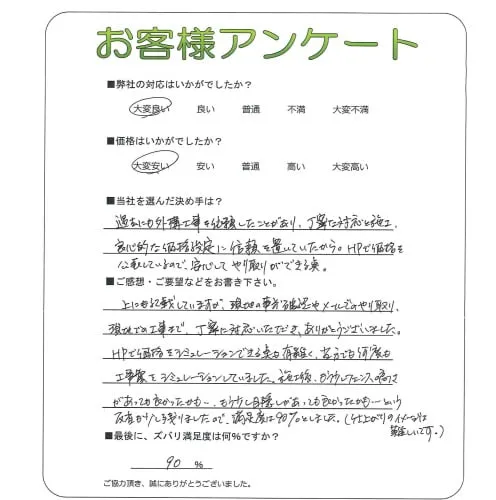 お客様アンケート
■弊社の対応はいかがでしたか?
大変良い 良い 普通 不満 大変不満
■価格はいかがでしたか?
大変安い 安い 普通 高い 大変高い
■当社を選んだ決め手は?
過去にも外構工事を依頼したことがあり、丁寧な対応と施工、
良心的な価格設定に信頼を置いていたから。HPで価格を
公表しているので、安心してやり取りができる点。
■ご感想・ご要望などをお書き下さい。
上にも記載していますが、現地の事前確認やメールでのやり取り、
現地での工事まで、丁寧に対応いただき、ありがとうございました。
HPで価格をシミュレーションできる点も有難く、何度も
工事案をシミュレーションしていました。施工後、もう少しフェンスの高さ
があっても良かったかも…、もう少し目隠しがあっても良かったかも…という
反省が少し残りましたので、満足度は90%としました。(仕上がりのイメージは
難しいです。)
■最後に、ズバリ満足度は何%ですか?
90 %
ご協力頂き、誠にありがとうございました。